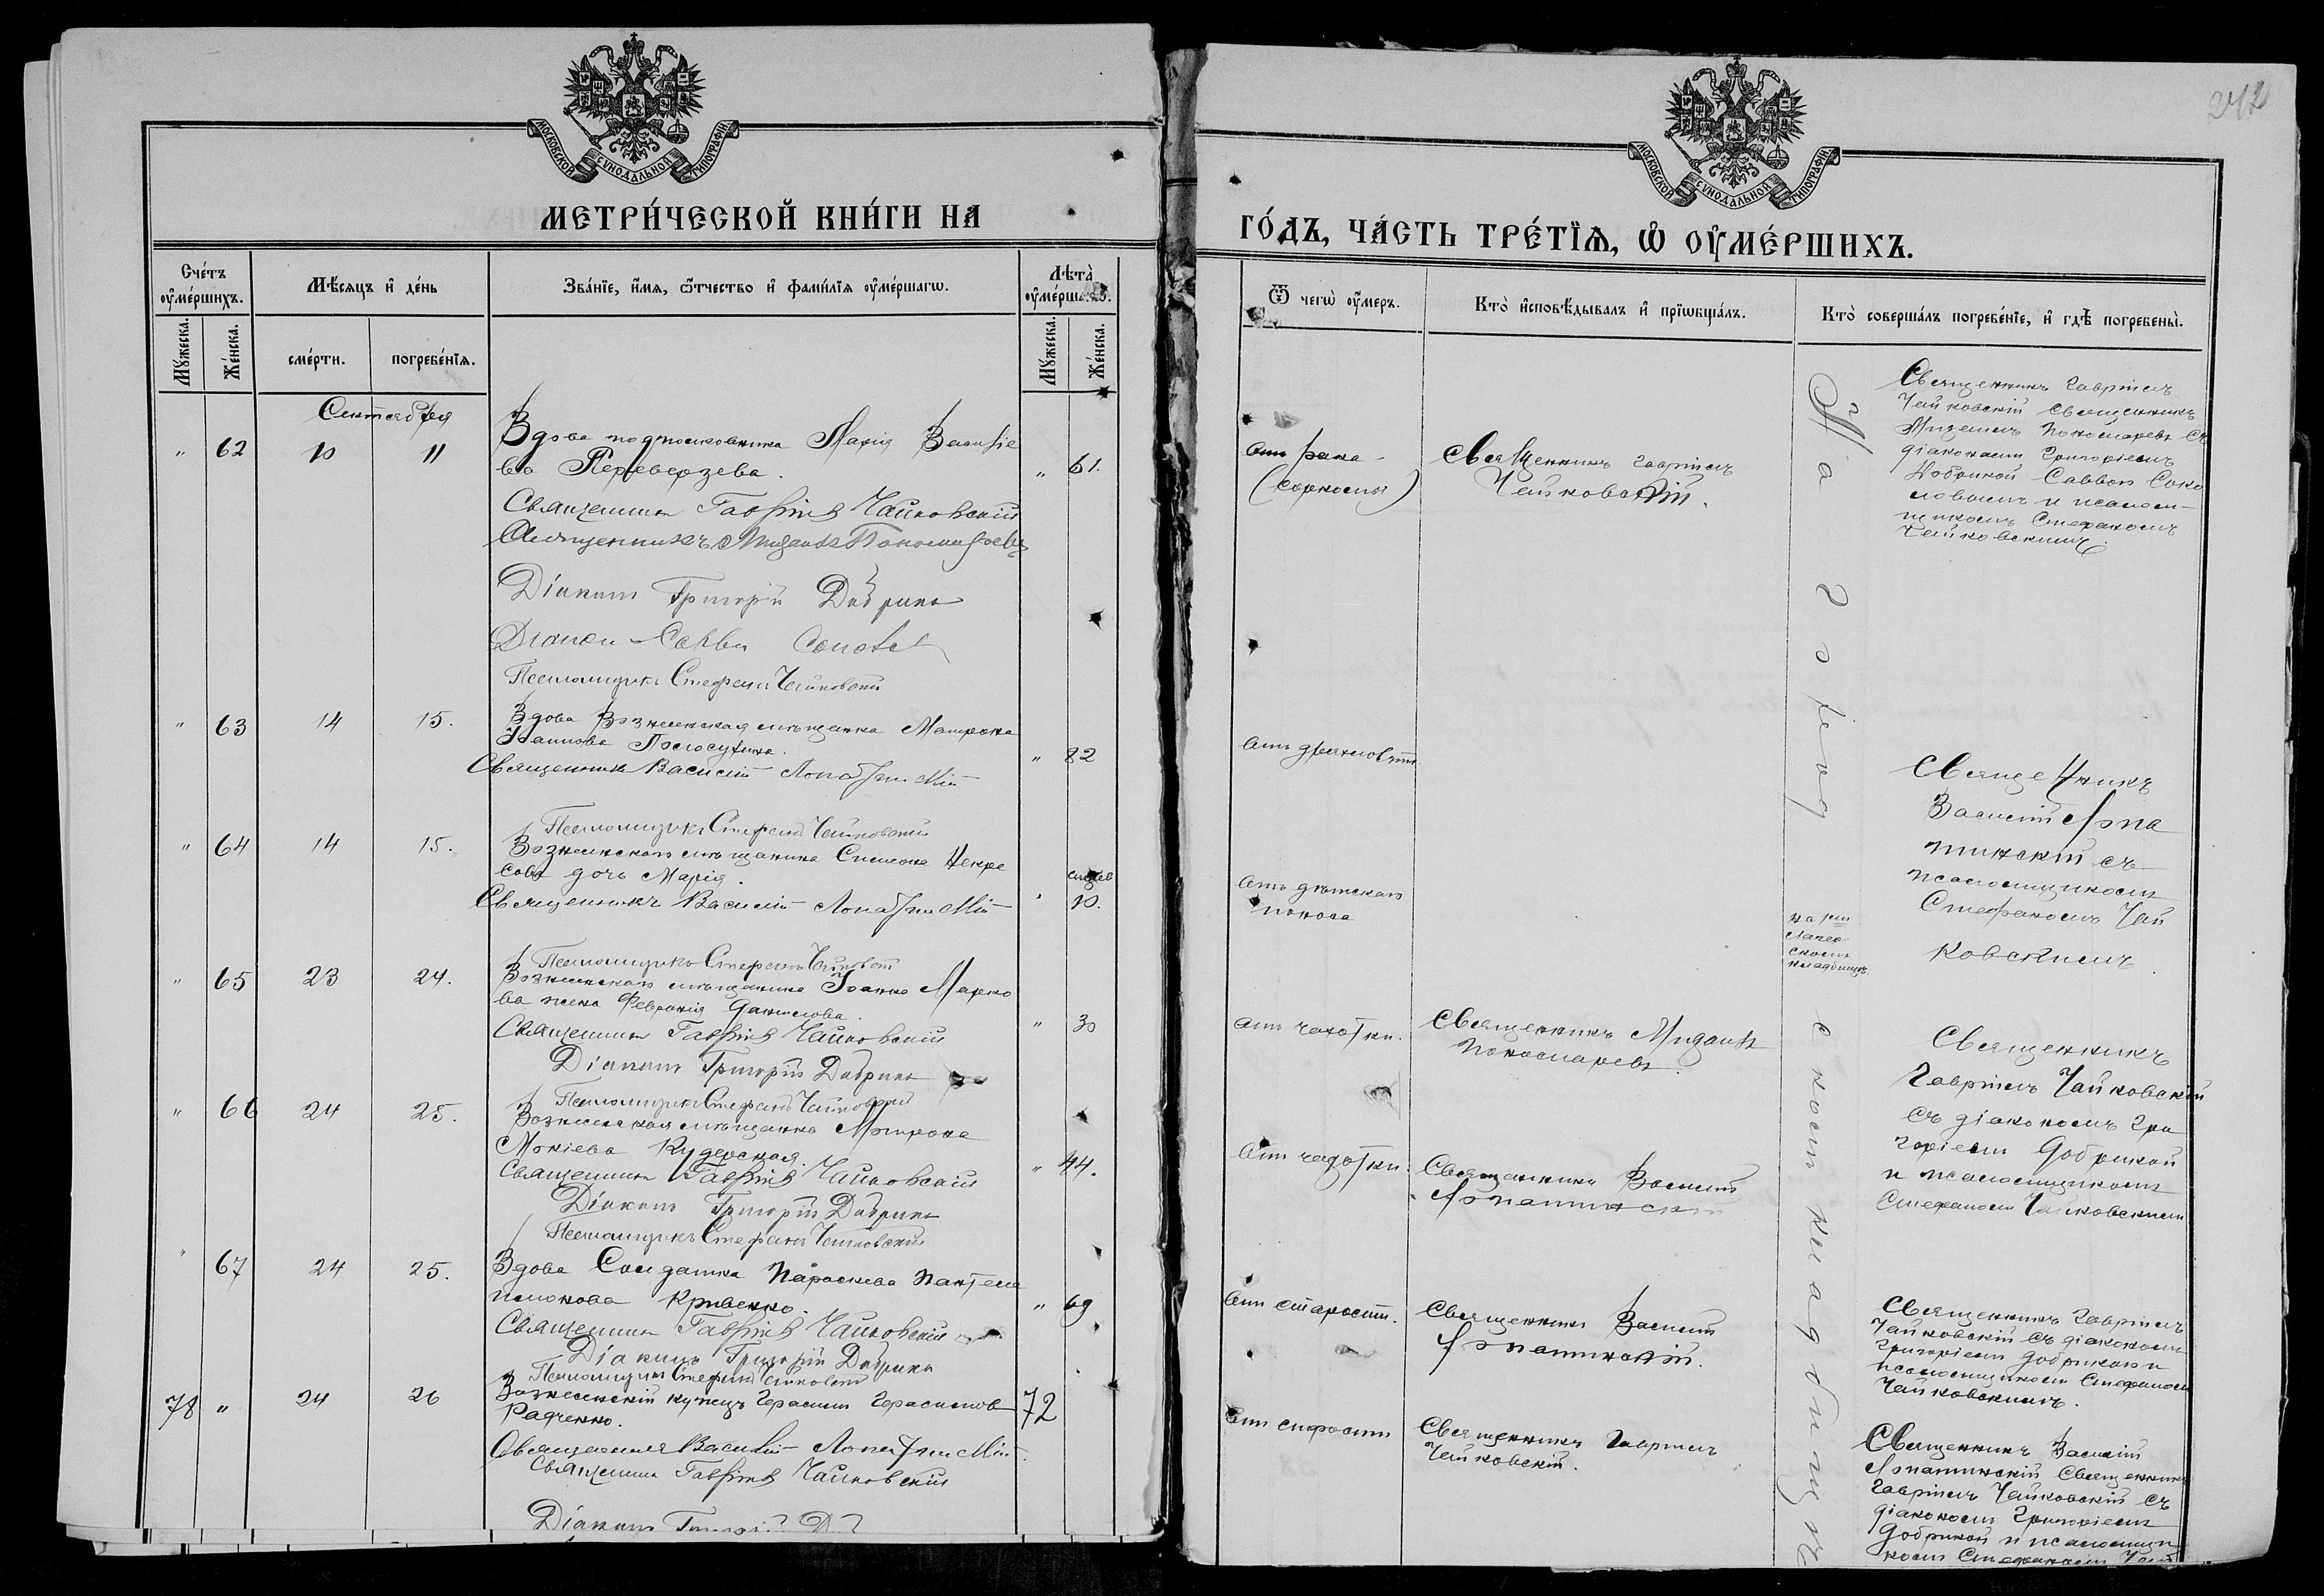 МОСКОВСКОЙ СУНОДАЛЬНОЙ ТИПОГРАФІИ
МЕТРИ́ЧЕСКОЙ КНИ́ГИ НА
Сче́тъ ᲂу҆ме́ршихъ.
Мѣ́сяцъ и҆ де́нь
Зва́нїе, и҆́мѧ, ѻ҆́тчество и҆ фами́лїѧ ᲂу҆ме́ршагѡ.
Лѣта̀ ᲂу҆ме́ршагѡ.
Мꙋ́жеска.
Же́нска.
сме́рти.
погребе́нїѧ.
Мꙋ́жеска.
Же́нска.
Сентября
" 62 10 11 Вдова подполковника Марія Василье
ва Переверзева. " 61.
Священникъ Гавріилъ Чайковскій
Священникъ Пономаревъ
Діаконъ Григорій Добрина
Діаконъ Савва Соколов
Псаломщикъ Стефанъ Чайковскій
" 63 14 15. Вдова Вознесенская мѣщанка Матрона
Іванова " 82
Священникъ Василій Лопатинскій
Псаломщикъ Стефанъ Чайковскій
" 64 14 15. Вознесенскаго мѣщанина Симеона Некра
сова дочь Марія.
Священникъ Василій Лопатинскій " 10.
Псаломщикъ Стефанъ Чайковскій
" 65 23 24. Вознесенскаго мѣщанина Іоанна Марко
ва жена Февронія Данилова.
Священникъ Гавріилъ Чайковскій " 30
Діаконъ Григорій Добрина
Псаломщикъ Стефанъ Чайковскій
" 66 24 25. Вознесенская мѣщанка Матрона
Мокіева Кудерская.
Священникъ Гавріилъ Чайковскій " 44.
Діаконъ Григорій Добрина
Псаломщикъ Стефанъ Чайковскій
" 67 24 25. Вдова Солдатка Параскева Пантеле
имонова Кривенко. " 69
Священникъ Гавріилъ Чайковскій
Діаконъ Григорій Добрина
Псаломщикъ Стефанъ Чайковскій
78 " 24 26 Вознесенскій купецъ Герасимъ Герасимов
Радченко. 72
Священникъ Василій Лопатинскій
Священникъ Гавріилъ Чайковскій
Діаконъ
242
МОСКОВСКОЙ СУНОДАЛЬНОЙ ТИПОГРАФІИ
ГО́ДЪ, ЧА́СТЬ ТРЕ́ТЇѦ, Ѽ ОУ҆МЕ́РШИХЪ.
Ѿ чегѡ̀ ᲂу҆́меръ.
Кто̀ и҆сповѣ́дывалъ и҆ прїѡбща́лъ.
Кто̀ соверша́лъ погребе́нїе, и҆ гдѣ̀ погребены̀.
На городскомъ кладбищѣ
отъ рака
(саркомы)
Священникъ Гавріилъ
Чайковскій.
Священникъ Гавріилъ
Чайковскій священникъ
Пономаревъ съ
діаконами Григоріемъ
Добриной Саввою Соко
ловымъ и псалом-
щикомъ Стефаномъ
Чайковскимъ.
отъ дряхлости
Священникъ
Василій Лопа
тинскій съ
псаломщикомъ
Стефаномъ Чай
ковскимъ.
отъ дѣтскаго
поноса
кладбищѣ
отъ чахотки.
Священникъ
Пономаревъ.
Священникъ
Гавріилъ Чайковскій
съ діакономъ Гри
горіемъ Добриной
и псаломщикомъ
Стефаномъ Чайковскимъ
отъ чахотки.
Священникъ Василій
Лопатинскій
отъ старости.
Священникъ Василій
Лопатинскій.
Священникъ Гавріилъ
Чайковскій съ діакономъ
Григоріемъ Добриною и
псаломщикомъ Стефаномъ
Чайковскимъ.
отъ старости
Священникъ Гавріилъ
Чайковскій.
Священникъ Василій
Лопатинскій Священникъ
Гавріилъ Чайковскій съ
діакономъ Григоріемъ
Добриной и псаломщи
комъ Стефаномъ